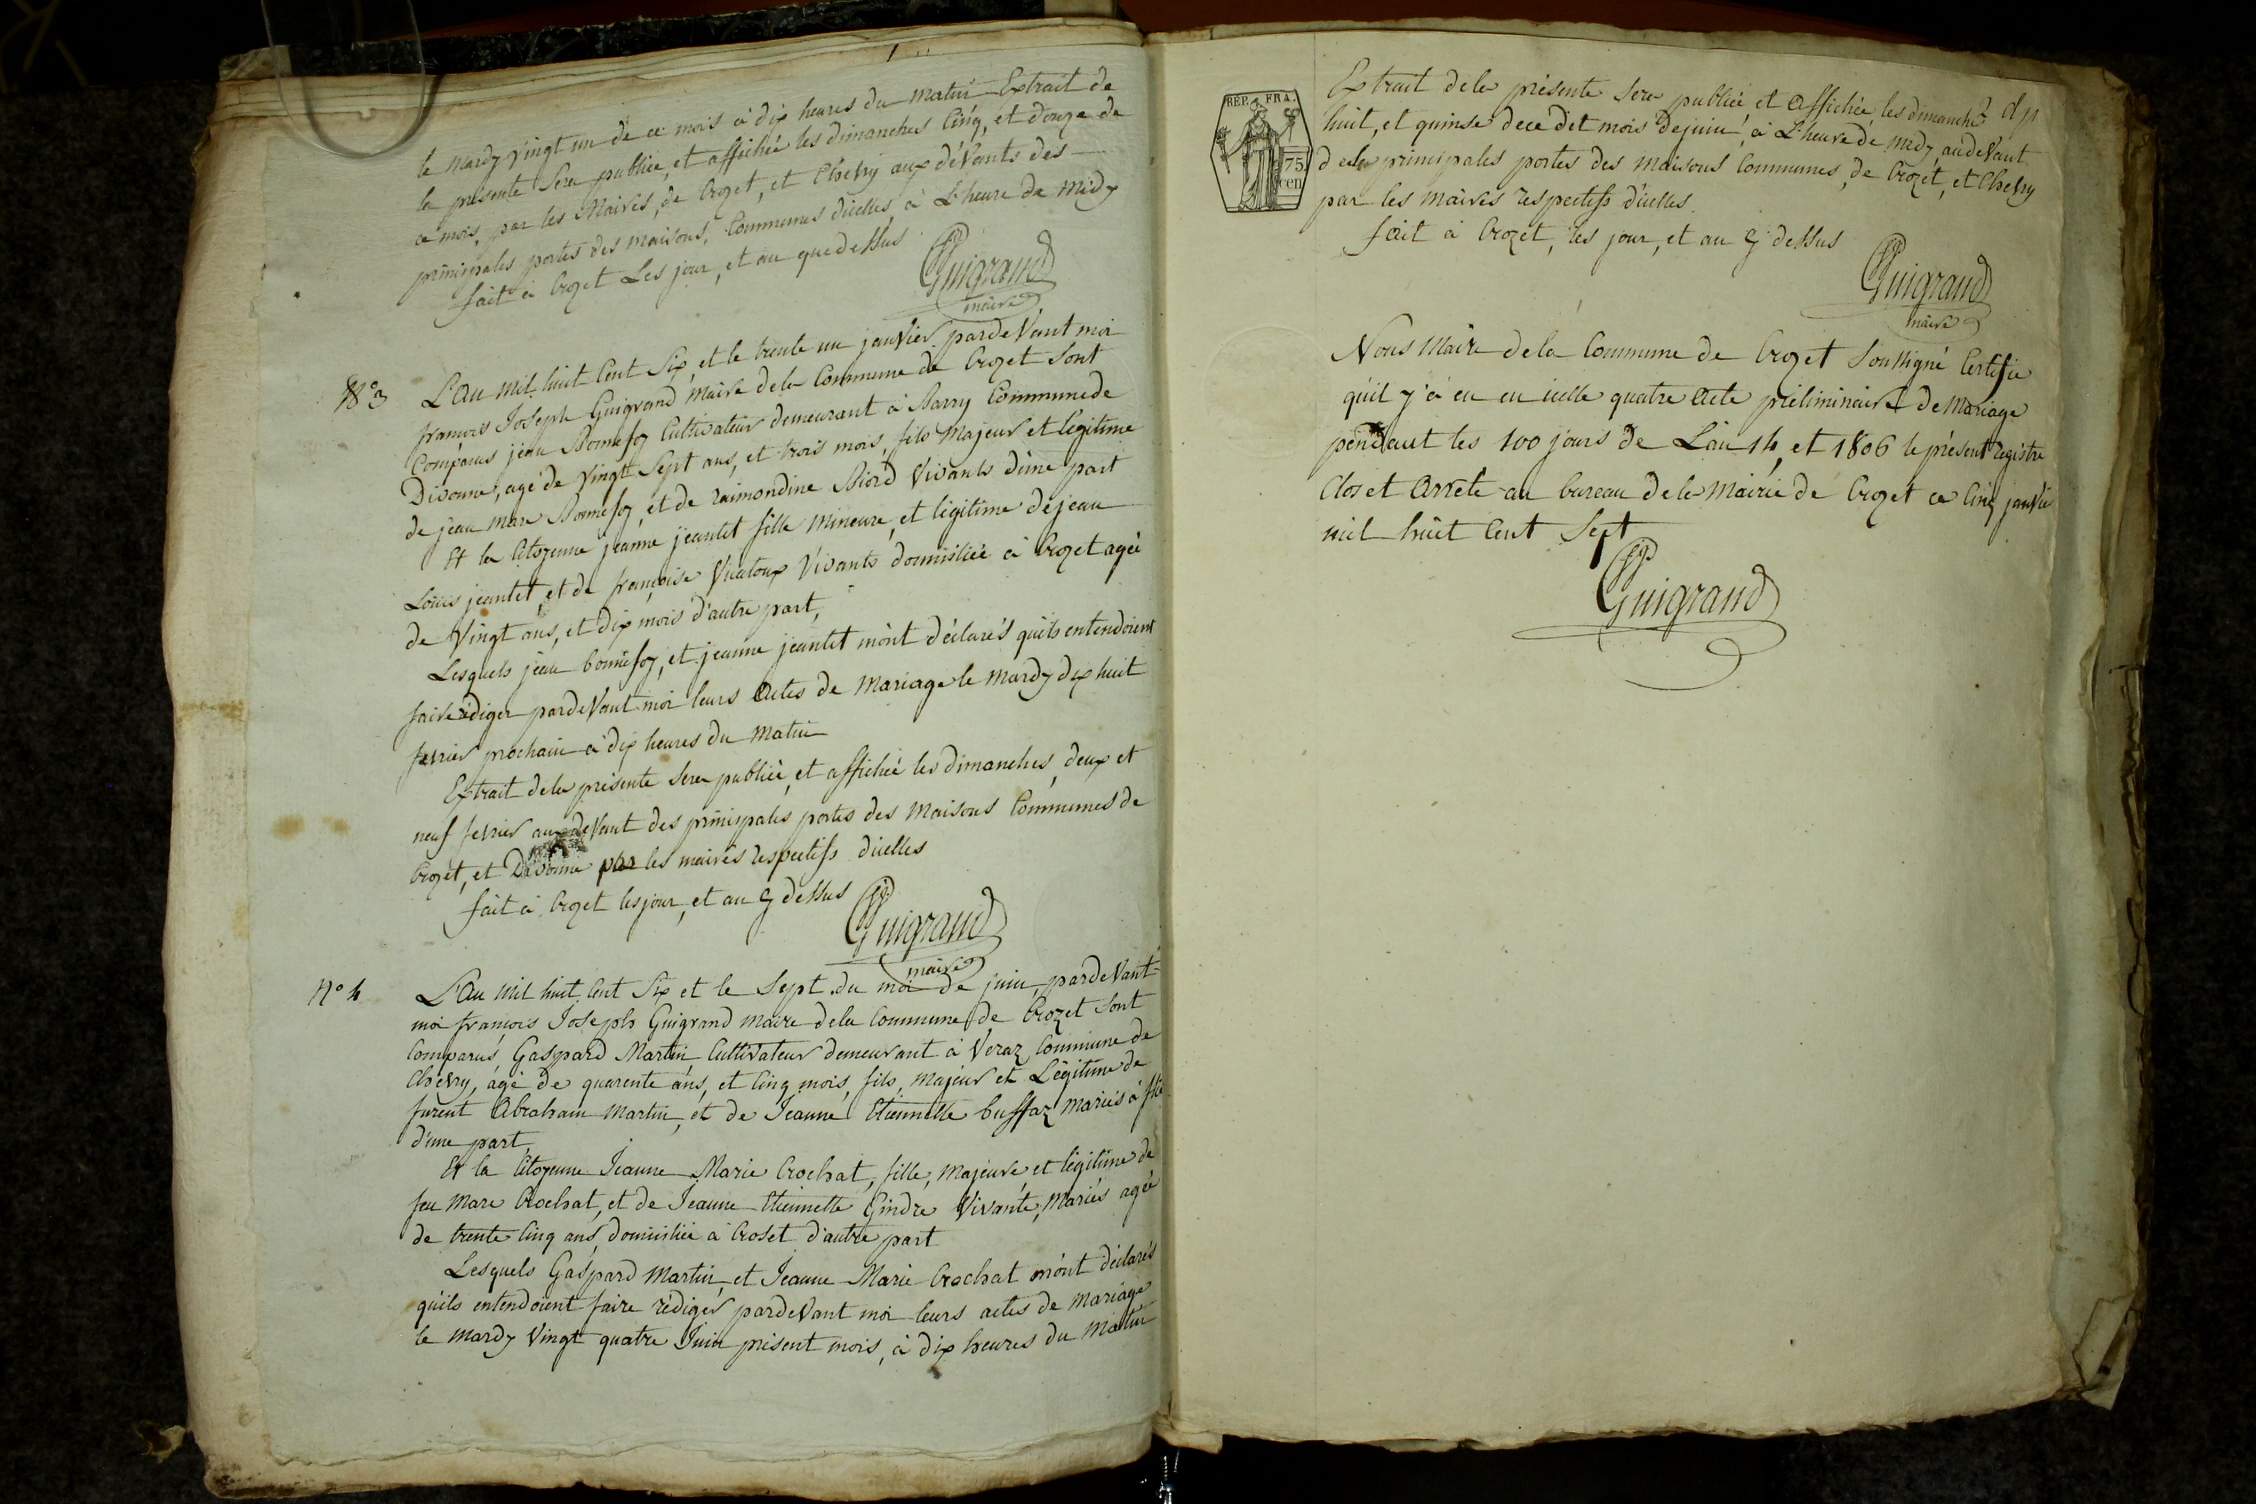 le mardy vingt un de ce mois à dix heures du matin Extrait de
la présente sera publiée, et affichée les dimanches Cinq, et douze de
ce mois, par les Maires, de Crozet, et Chevry aux dévants des
principales portes des maisons, Communes d'icelles, à L'heure de midy
fait à Crozet Les jour, et an que dessus
Guigrand
maire
N° 3 L'an mil huit Cent Six, et le trente un janvier, pardevant moi
françois Joseph Guigrand maire dela Commune de Crozet Sont
Comparus jean Bonnefoy Cultivateur demeurant à Barry Commune de
Divonne, agé de vingt Sept ans, et trois mois, fils Majeur et légitime
de jean marc Bonnefoy, et de raimondine Biord Vivants d'une part
Et la Citoyenne jeanne jeantet fille Mineure, et légitime de jean
Louis jeantet, et de françoise Vuatoux Vivants domiciliée à Crozet agée
de Vingt ans, et dix mois d'autre part,
Lesquels jean bonnefoy, et jeanne jeantet m'ont déclarés quils entendoient
faire rédiger pardevant moi leurs Actes de Mariage le Mardy dix huit
fevrier prochain à dix heures du Matin
Extrait dela présente sera publiée, et affichée les dimanches, deux et
neuf fevrier aux devant des principales portes des Maisons Communes de
Crozet, et Divonne par les maires respectifs d'icelles
fait à Crozet les jour, et an q dessus
Guigrand
maire
N° 4 L'an mil huit Cent Six et le Sept du moi de juin, pardevant
moi françois Joseph Guigrand maire dela Commune de Crozet Sont
Comparus Gaspard Martin Cultivateur demeurant à Veraz Commune de
Chevry, agé de quarente ans, et Cinq mois, fils, majeur et Légitime de
furent Abraham Martin, et de Jeanne Etiennette buffaz mariés à
d'une part,
Et la Citoyenne Jeanne Marie Crochat, fille, majeure, et légitime de
feu Marc Crochat, et de Jeanne Etiennette Gindre Vivante, Mariés agée
de trente Cinq ans, domiciliée à Croset d'autre part
Lesquels Gaspard Martin, et Jeanne Marie Crochat m'ont déclarés
quils entendoient faire rédiger pardevant moi leurs actes de Mariage
le Mardy Vingt quatre Juin présent mois, à dix heures du Matin
REP. FRA.
75
cen
Extrait dela présente Sera publiée et Affichée, les dimanche
huit, et quinse de ce dit mois de juin, à L'heure de midy, audevant
dela principales portes des maisons Communes, de Crozet, et Chevry
par les maires respectifs d'icelles.
fait à Crozet, les jour, et an q dessus
Guigrand
maire
Nous Maire dela Commune de Crozet Soussigné Certifie
quil y'a eu en icelle quatre Acte préliminaire de Mariage
pendant les 100 jours de L'an 14, et 1806 le présent registre
Clos et Arrêté au bureau dela Mairie de Crozet ce Cinq janvie
mil huit Cent Sept
Guigrand